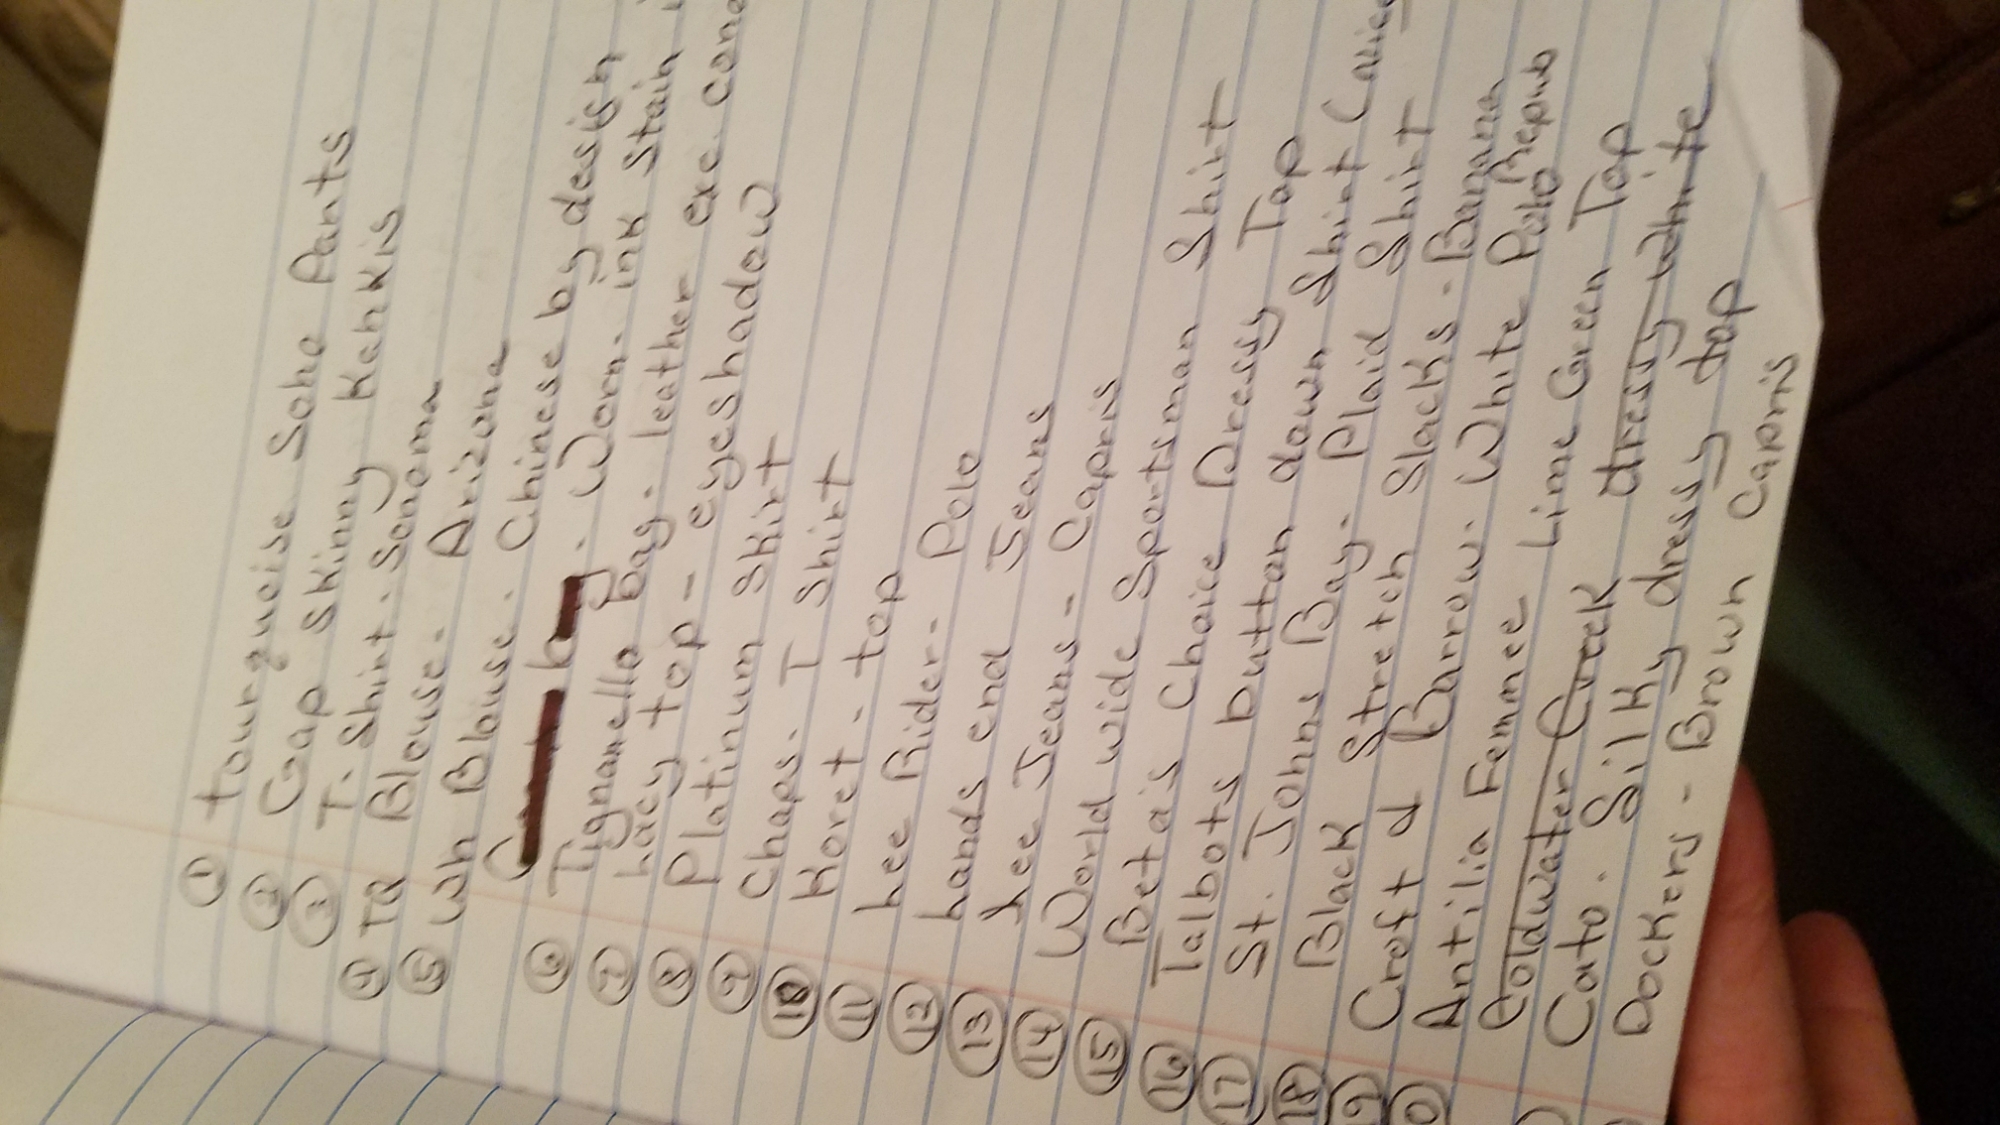 ① tourqueise Soho Pants
② Gap Skinny Kahkis
③ T-Shirt. Sonoma
④ TQ Blouse. Arizona
⑤ Wh Blouse. Chinese by design
⑥ Tignanello Bag. Worn. ink Stain
⑦ Lacy top - leather exc. cond
⑧ Platinum Skirt eyeshadow
⑨ Chaps. T Shirt
⑩ Koret - top
⑪ Lee Rider. Polo
⑫ Lands end Jeans
⑬ Lee Jeans - Capris
⑭ World wide Sportsman Shirt
⑮ Beta's Choice Dressy Top
⑯ Talbots button down Shirt (
⑰ St. Johns Bay- Plaid Shirt
⑱ Black Stretch Slacks. Banana Repub
19 Croft & Barrow. White Polo
0 Antilia Femme Lime Green Top
Coldwater Creek dressy white
Cato. Silky dressy top
Dockers - Brown Capris